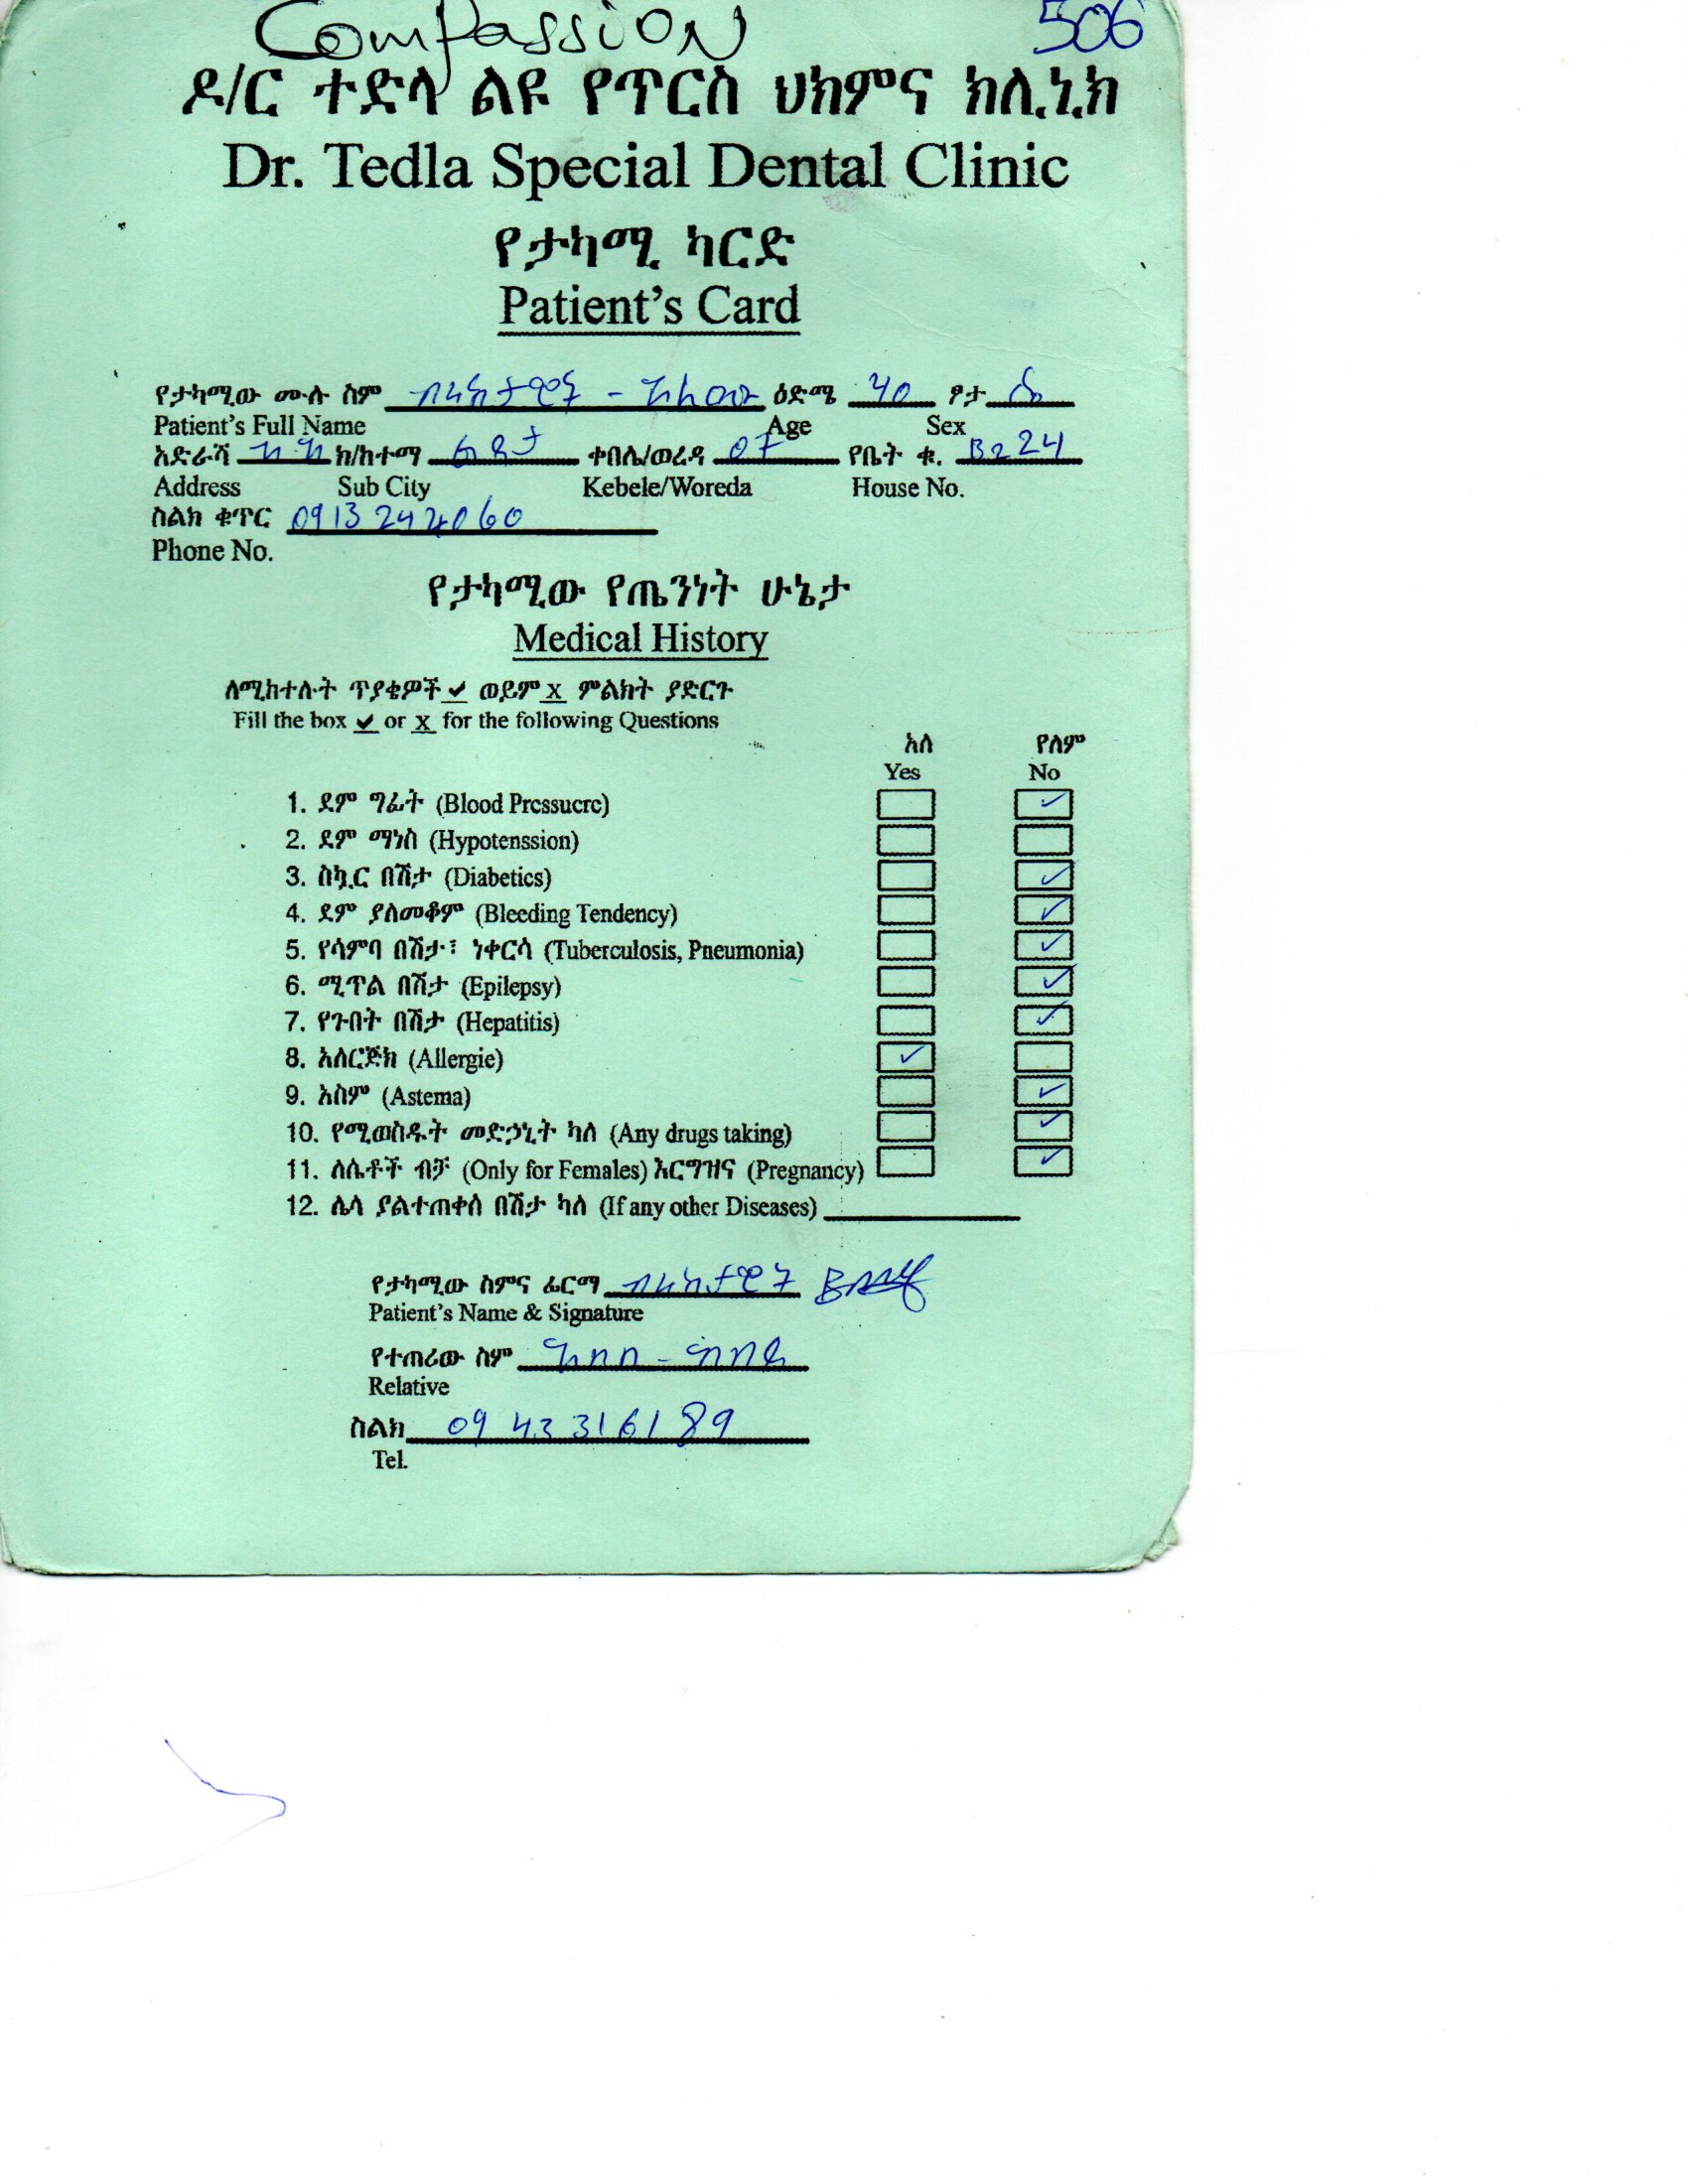 Compassion 506
ዶ/ር ተድላ ልዩ የጥርስ ህክምና ክሊኒክ
Dr. Tedla Special Dental Clinic
የታካሚ ካርድ
Patient's Card
የታካሚው ሙሉ ስም ዕድሜ 40 ፆታ ሴ
Patient's Full Name Age Sex
አድራሻ አ.አ ክ/ከተማ ልደታ ቀበሌ/ወረዳ 07 የቤት ቁ. B224
Address Sub City Kebele/Woreda House No.
ስልክ ቁጥር
Phone No.
የታካሚው የጤንነት ሁኔታ
Medical History
ለሚከተሉት ጥያቄዎች ✔ ወይም x ምልክት ያድርጉ
Fill the box ✔ or x for the following Questions
አለ የለም
Yes No
1. ደም ግፊት (Blood Pressuere) ✓
2. ደም ማነስ (Hypotenssion)
3. ስኳር በሽታ (Diabetics) ✓
4. ደም ያለመቆም (Bleeding Tendency) ✓
5. የሳምባ በሽታ፣ ነቀርሳ (Tuberculosis, Pneumonia) ✓
6. ሚጥል በሽታ (Epilepsy) ✓
7. የጉበት በሽታ (Hepatitis) ✓
8. አለርጅክ (Allergie) ✓
9. አስም (Astema) ✓
10. የሚወስዱት መድኃኒት ካለ (Any drugs taking) ✓
11. ለሴቶች ብቻ (Only for Females) እርግዝና (Pregnancy) ✓
12. ሌላ ያልተጠቀሰ በሽታ ካለ (If any other Diseases)
የታካሚው ስምና ፊርማ
Patient's Name & Signature
የተጠሪው ስም
Relative
ስልክ 09 43 316189
Tel.